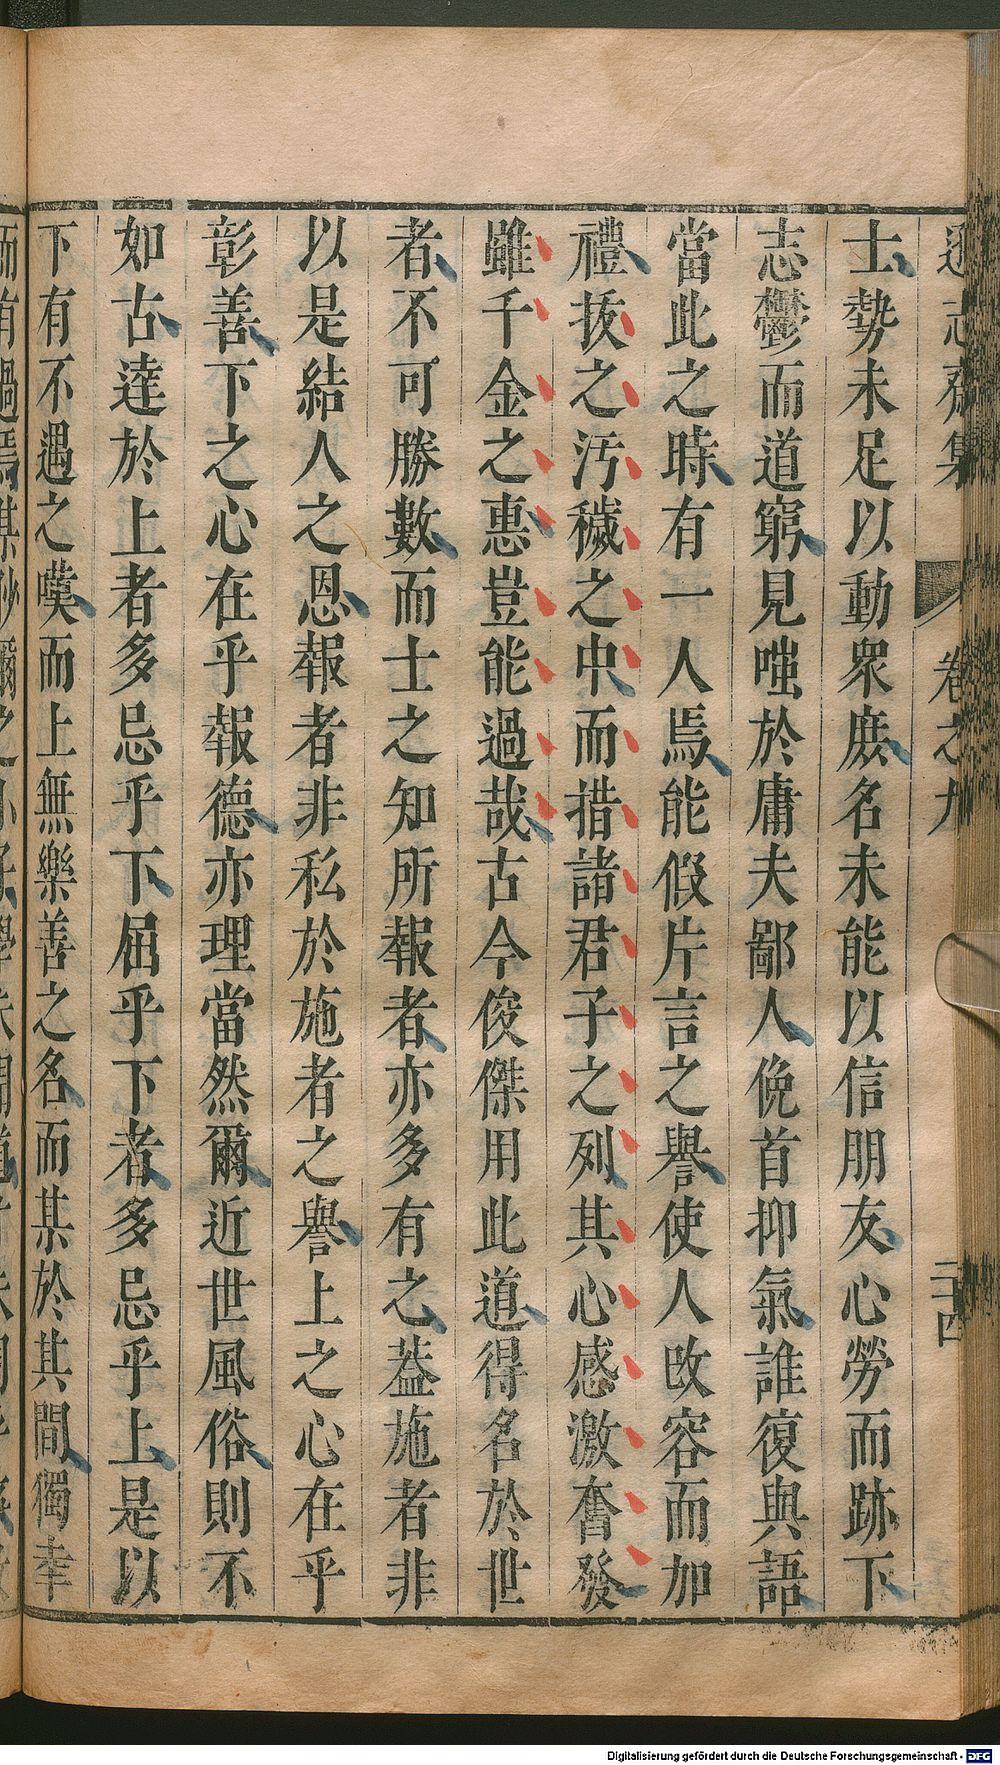 遜志齋集 卷之九 二十四
士勢未足以動衆庶名未能以信朋友心勞而跡下
志鬱而道窮見嗤於庸夫鄙人俛首抑氣誰復與語
當此之時有一人焉能假片言之譽使人改容而加
禮拔之汚穢之中而措諸君子之列其心感激奮發
雖千金之惠豈能過哉古今俊傑用此道得名於世
者不可勝數而士之知所報者亦多有之葢施者非
以是結人之恩報者非私於施者之譽上之心在乎
彰善下之心在乎報德亦理當然爾近世風俗則不
如古達於上者多忌乎下屈乎下者多忌乎上是以
下有不遇之嘆而上無樂善之名而某於其間獨幸
Digitalisierung gefördert durch die Deutsche Forschungsgemeinschaft - DFG